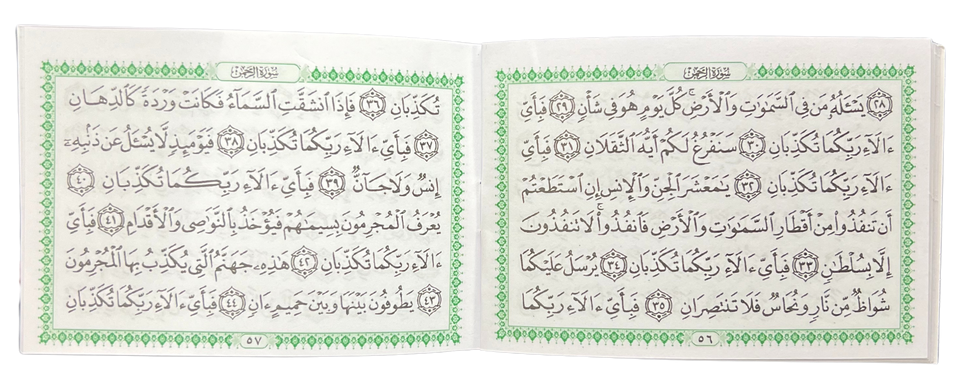 سُورَةُ الرَّحْمٰن
﴿٢٨﴾ يَسْـَٔلُهُۥ مَن فِى السَّمَٰوَٰتِ وَالْأَرْضِ ۚ كُلَّ يَوْمٍ هُوَ فِى شَأْنٍ ﴿٢٩﴾ فَبِأَىِّ
ءَالَآءِ رَبِّكُمَا تُكَذِّبَانِ ﴿٣٠﴾ سَنَفْرُغُ لَكُمْ أَيُّهَ الثَّقَلَانِ ﴿٣١﴾ فَبِأَىِّ
ءَالَآءِ رَبِّكُمَا تُكَذِّبَانِ ﴿٣٢﴾ يَٰمَعْشَرَ الْجِنِّ وَالْإِنسِ إِنِ اسْتَطَعْتُمْ
أَن تَنفُذُوا۟ مِنْ أَقْطَارِ السَّمَٰوَٰتِ وَالْأَرْضِ فَانفُذُوا۟ ۚ لَا تَنفُذُونَ
إِلَّا بِسُلْطَٰنٍ ﴿٣٣﴾ فَبِأَىِّ ءَالَآءِ رَبِّكُمَا تُكَذِّبَانِ ﴿٣٤﴾ يُرْسَلُ عَلَيْكُمَا
شُوَاظٌ مِّن نَّارٍ وَنُحَاسٌ فَلَا تَنتَصِرَانِ ﴿٣٥﴾ فَبِأَىِّ ءَالَآءِ رَبِّكُمَا
٥٦
سُورَةُ الرَّحْمٰن
تُكَذِّبَانِ ﴿٣٦﴾ فَإِذَا انشَقَّتِ السَّمَآءُ فَكَانَتْ وَرْدَةً كَالدِّهَانِ
﴿٣٧﴾ فَبِأَىِّ ءَالَآءِ رَبِّكُمَا تُكَذِّبَانِ ﴿٣٨﴾ فَيَوْمَئِذٍ لَّا يُسْـَٔلُ عَن ذَنۢبِهِۦٓ
إِنسٌ وَلَا جَآنٌّ ﴿٣٩﴾ فَبِأَىِّ ءَالَآءِ رَبِّكُمَا تُكَذِّبَانِ ﴿٤٠﴾
يُعْرَفُ الْمُجْرِمُونَ بِسِيمَٰهُمْ فَيُؤْخَذُ بِالنَّوَٰصِى وَالْأَقْدَامِ ﴿٤١﴾ فَبِأَىِّ
ءَالَآءِ رَبِّكُمَا تُكَذِّبَانِ ﴿٤٢﴾ هَٰذِهِۦ جَهَنَّمُ الَّتِى يُكَذِّبُ بِهَا الْمُجْرِمُونَ
﴿٤٣﴾ يَطُوفُونَ بَيْنَهَا وَبَيْنَ حَمِيمٍ ءَانٍ ﴿٤٤﴾ فَبِأَىِّ ءَالَآءِ رَبِّكُمَا تُكَذِّبَانِ
٥٧